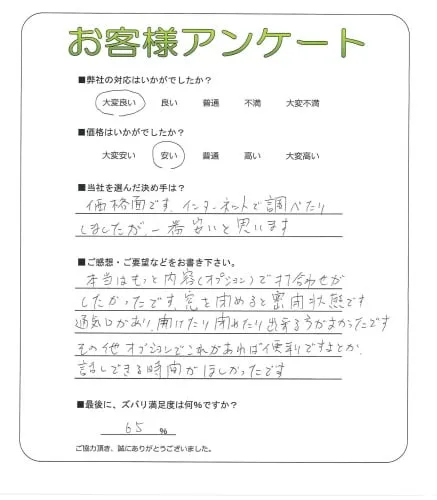 お客様アンケート
■弊社の対応はいかがでしたか？
大変良い 良い 普通 不満 大変不満
■価格はいかがでしたか？
大変安い 安い 普通 高い 大変高い
■当社を選んだ決め手は？
価格面です。インターネットで調べたり
しましたが、一番安いと思います
■ご感想・ご要望などをお書き下さい。
本当はもっと内容(オプション)で打合わせが
したかったです。窓を閉めると密閉状態です
通気口があり、開けたり閉めたり出来る方がよかったです
その他オプションでこれがあれば便利ですよとか、
話しできる時間がほしかったです
■最後に、ズバリ満足度は何%ですか？
65 %
ご協力頂き、誠にありがとうございました。